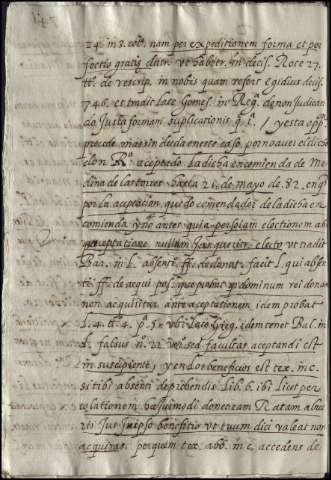 24. in 8. col. nam per expeditionem forma et per
fectio gratiæ datur vt habetur in decis. Rote 27.
tt. de rescrip. in nobis quam refert egidius decis.
746. et tradit late Gomes. in Reg. de non Judican
do Justa formam suplicationis q. 1. / y esta opp.
procede mas sin duda en este caso, por no auer el dicho
don R.º aceptado la dicha encomienda de Me
dina de las torres hasta 21. de mayo de 82. en q
por la aceptacion quedo comendador de la dicha en
comienda y no antes quia per solam electionem ab
acceptatione nullum Jus queritur electo vt tradit
Bar. in L. absenti ff. de donat. facit L. qui absen
ti. ff. de acqui. pos. que probat q dominum rei donatæ
non acquiritur ante acceptationem idem probat
L. 4. tt. 4. p. 5. vbi late Greg. idem tenet Bal. in
l. falsus n.º 22. sed facultas aceptandi est
in suscipiente, y en los beneficios est tex. in c.
si tibi absenti de prebendis lib. 6. ibi licet per
colationem hujusmodi donec eam Ratam abue
ris Jus in ipso beneficio vt tuum dici valeat non
acquiras. porque en tex. ab. in c. accedens de